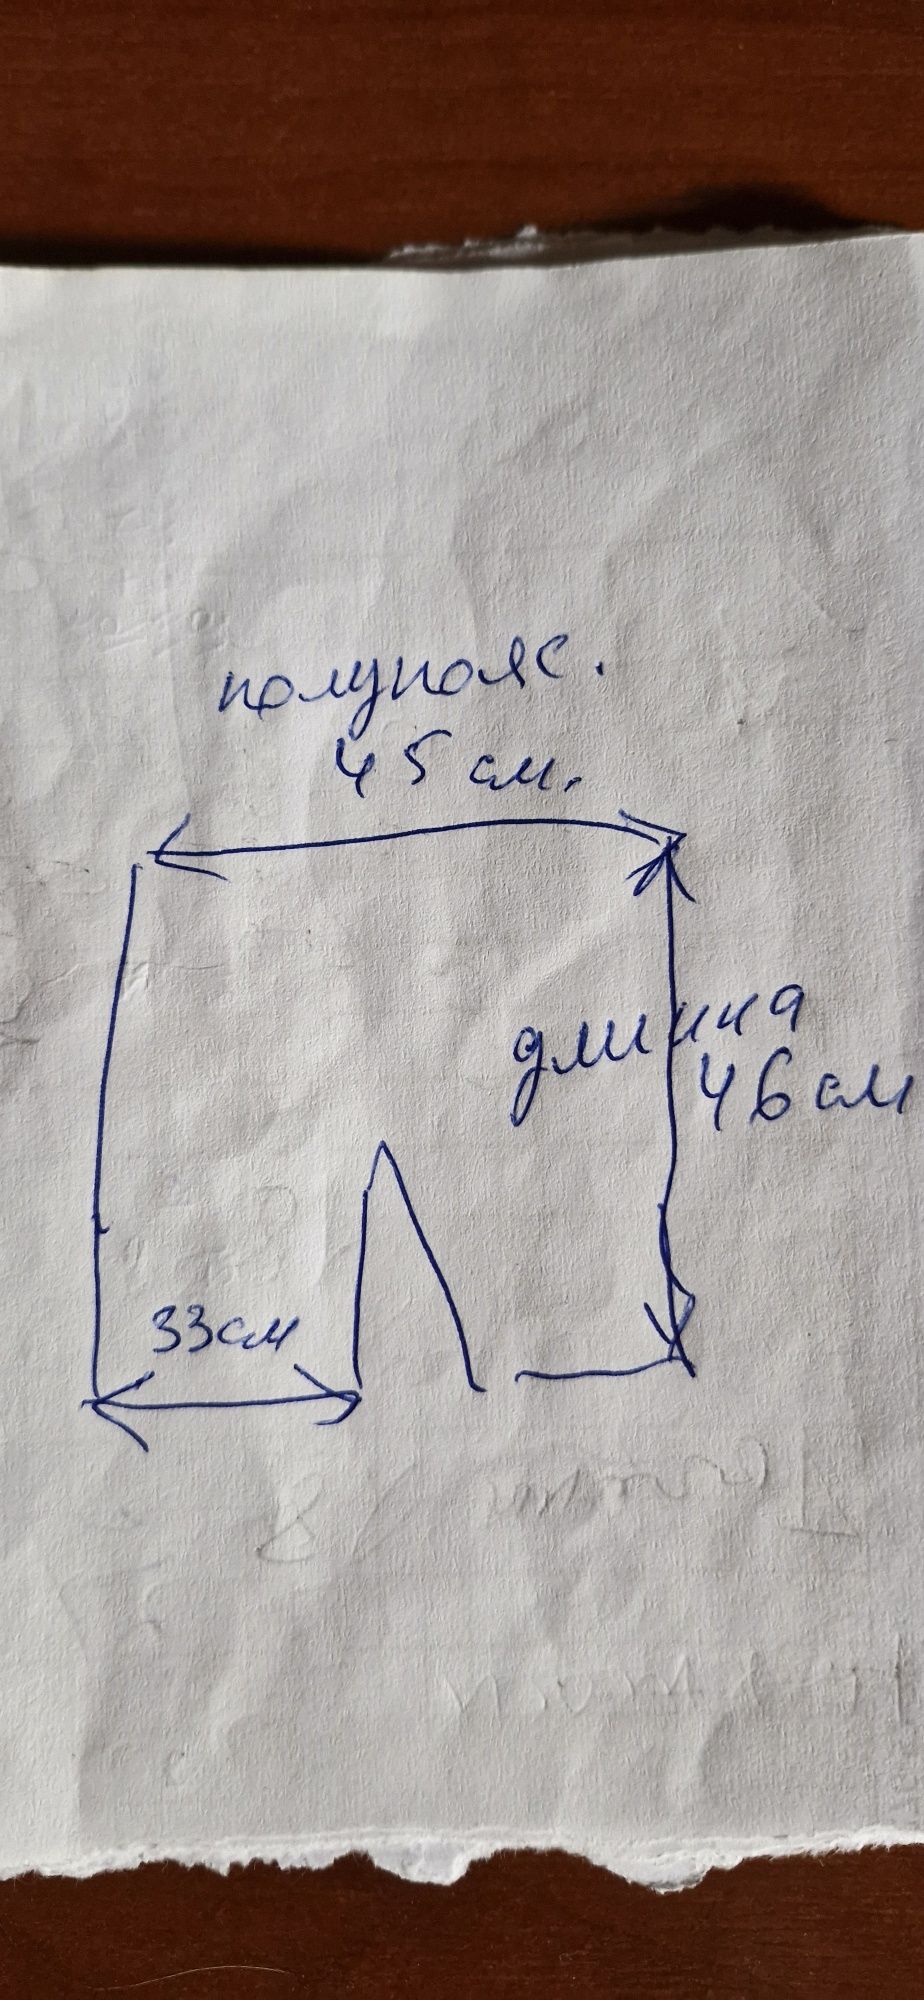 полупояс.
45 см.
длинна
46 см
33 см